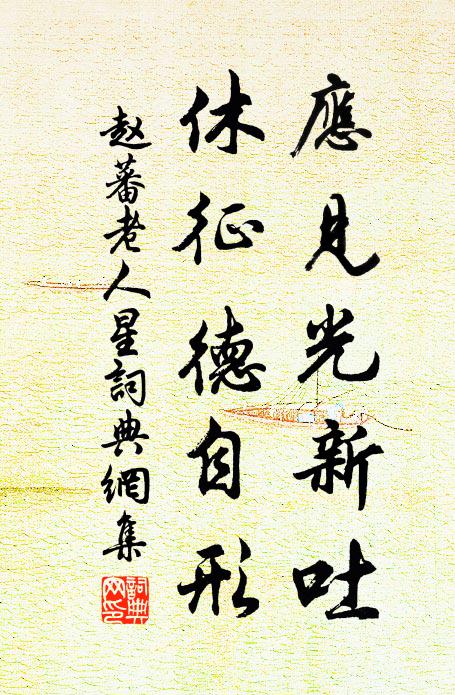 應見光新吐
休征德自形
赵蕃老人星詞典網集
詞典网印